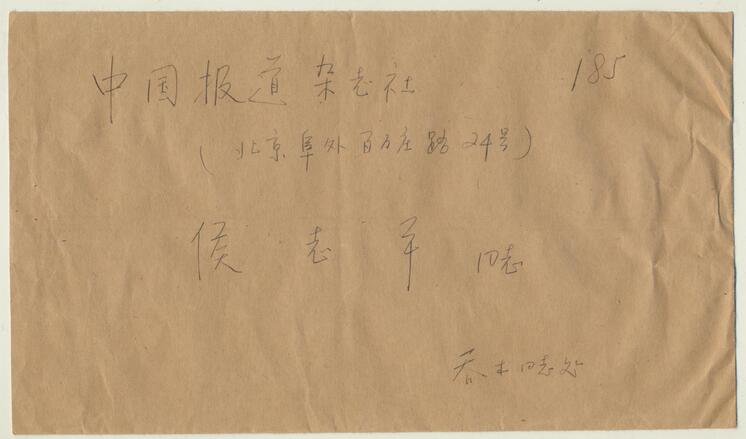 中国报道杂志社 185
(北京阜外百万庄路24号)
侯志平 同志
木同志